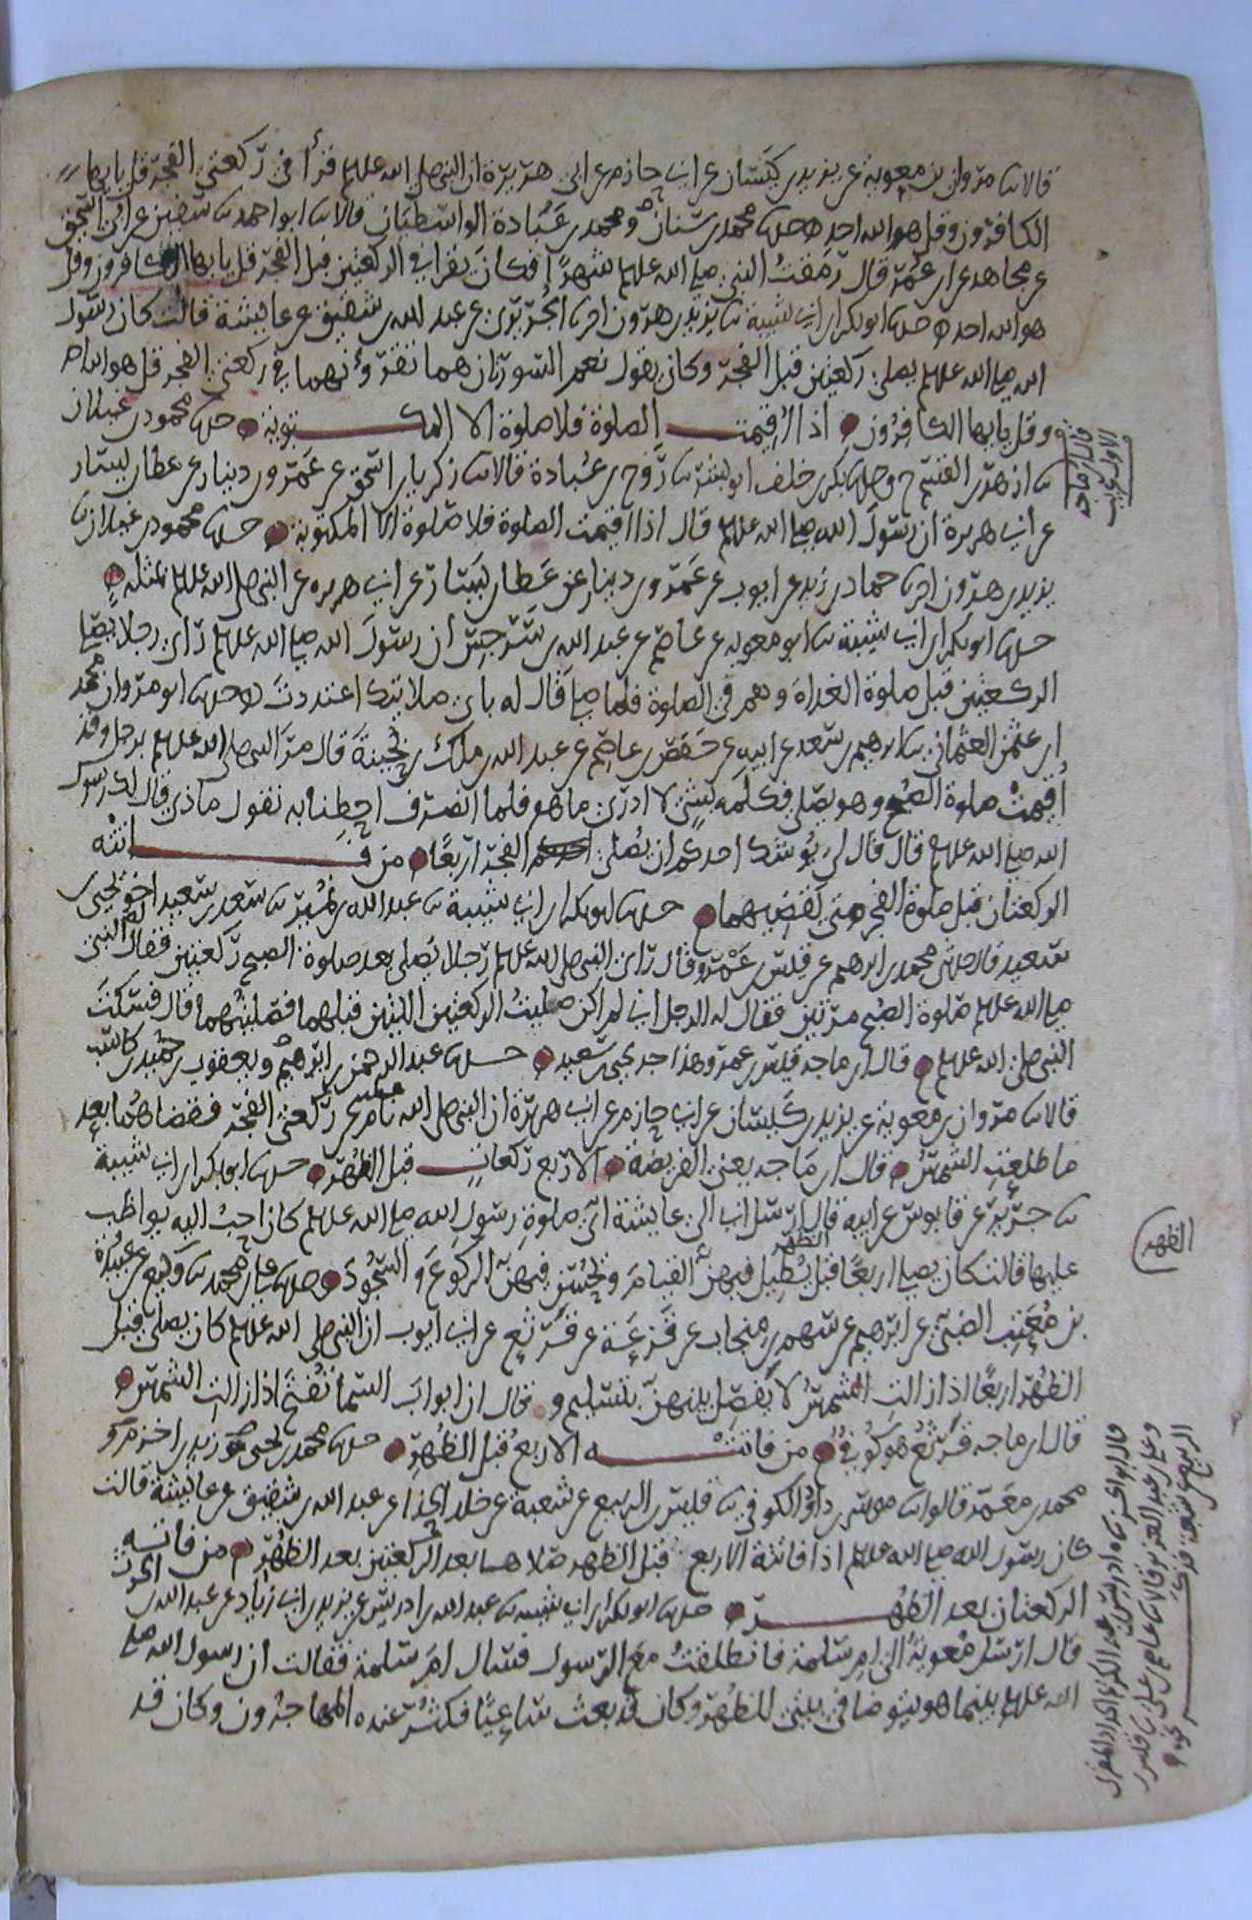 قالا ثنا مروان بن معوية عن يزيد بن كيسان عن ابي حازم عن ابي هريرة ان النبي صلى الله عليه قرأ في ركعتي الفجر قل يا ايها
الكافرون وقل هو الله احد حدثنا محمد بن سنان ومحمد بن عبادة الواسطيان قالا ثنا ابو احمد ثنا سفين عن ابي اسحق
عن مجاهد عن ابن عمر قال رمقت النبي صلى الله عليه شهرًا فكان يقرا في الركعتين قبل الفجر قل يا ايها الكافرون وقل
هو الله احد حدثنا ابو بكر بن ابي شيبة ثنا يزيد بن هرون انا الجريري عن عبد الله بن شقيق عن عايشة قالت كان رسول
الله صلى الله عليه يصلي ركعتين قبل الفجر وكان يقول نعم السورتان هما تقرؤنهما في ركعتي الفجر قل هو الله احد
وقل يا ايها الكافرون اذا اقيمت الصلوة فلا صلوة الا المكتوبة حدثنا محمود بن غيلان
ثنا ازهر بن القسم ح وحدثنا بكر بن خلف ابو بشر ثنا روح بن عبادة قالا ثنا زكريا بن اسحق عن عمرو بن دينار عن عطا بن يسار
عن ابي هريرة ان رسول الله صلى الله عليه قال اذا اقيمت الصلوة فلا صلوة الا المكتوبة حدثنا محمود بن غيلان ثنا
يزيد بن هرون انا حماد بن زيد عن ايوب عن عمرو بن دينار عن عطا بن يسار عن ابي هريرة عن النبي صلى الله عليه بمثله
حدثنا ابو بكر بن ابي شيبة ثنا ابو معوية عن عاصم عن عبد الله بن سرجس ان رسول الله صلى الله عليه راى رجلا يصلي
الركعتين قبل صلوة الغداة وهم في الصلوة فلما صلى قال له باي صلاتيك اعتددت حدثنا ابو مروان محمد
ابن عثمن العثماني ثنا ابرهيم بن سعد عن ابيه عن حفص بن عاصم عن عبد الله بن ملك بن بحينة قال مر النبي صلى الله عليه برجل وقد
اقيمت صلوة الصبح وهو يصلي فكلمه بشي لا ادري ما هو فلما انصرف احطنا به نقول ماذا قال لك رسول
الله صلى الله عليه قال قال لي يوشك احدكم ان يصلي الفجر اربعًا من فاتته
الركعتان قبل صلوة الفجر متى يقضيهما حدثنا ابو بكر بن ابي شيبة ثنا عبد الله بن نمير ثنا سعد بن سعيد اخو يحيى بن
سعيد قال حدثني محمد بن ابرهيم عن قيس بن عمرو قال راى النبي صلى الله عليه رجلا يصلي بعد صلوة الصبح ركعتين فقال النبي
صلى الله عليه صلوة الصبح مرتين فقال له الرجل اني لم اكن صليت الركعتين اللتين قبلهما فصليتهما قال فسكت
النبي صلى الله عليه قال ابن ماجه قيس بن عمرو هذا جد يحيى بن سعيد حدثنا عبد الرحمن بن ابرهيم ويعقوب بن حميد بن كاسب
قالا ثنا مروان بن معوية عن يزيد بن كيسان عن ابي حازم عن ابي هريرة ان النبي صلى الله نام عن ركعتي الفجر فقضاهما بعد
ما طلعت الشمس قال ابن ماجه يعني الفريضة الاربع ركعات قبل الظهر حدثنا ابو بكر بن ابي شيبة
ثنا جرير عن قابوس عن ابيه قال ارسل ابي الى عايشة اي صلوة رسول الله صلى الله عليه كان احب اليه يواظب
عليها قالت كان يصلي اربعًا قبل الظهر يطيل فيهن القيام ويحسن فيهن الركوع والسجود حدثنا علي بن محمد ثنا وكيع عن عبيدة
بن معتب الضبي عن ابرهيم عن سهم بن منجاب عن قزعة عن قرثع عن ابي ايوب ان النبي صلى الله عليه كان يصلي قبل
الظهر اربعًا اذا زالت الشمس لا يفصل بينهن بتسليم وقال ان ابواب السما تفتح اذا زالت الشمس
قال ابن ماجه قرثع هو كوفي من فاتته الاربع قبل الظهر حدثنا محمد بن يحيى وزيد بن اخزم و
محمد بن معمر قالوا ثنا موسى بن داود الكوفي ثنا قيس بن الربيع عن شعبة عن خالد الحذا عن عبد الله بن شقيق عن عايشة قالت
كان رسول الله صلى الله عليه اذا فاتته الاربع قبل الظهر صلاها بعد الركعتين بعد الظهر من فاتته
الركعتان بعد الظهر حدثنا ابو بكر بن ابي شيبة ثنا عبد الله بن ادريس عن يزيد بن ابي زياد عن عبد الله بن الحرث
قال ارسل معوية الى ام سلمة فانطلقت مع الرسول فسال ام سلمة فقالت ان رسول الله صلى
الله عليه بينما هو يتوضا في بيتي للظهر وكان قد بعث ساعيًا فكثر عنده المهاجرون وكان قد
قال ابن ماجه
الظهر